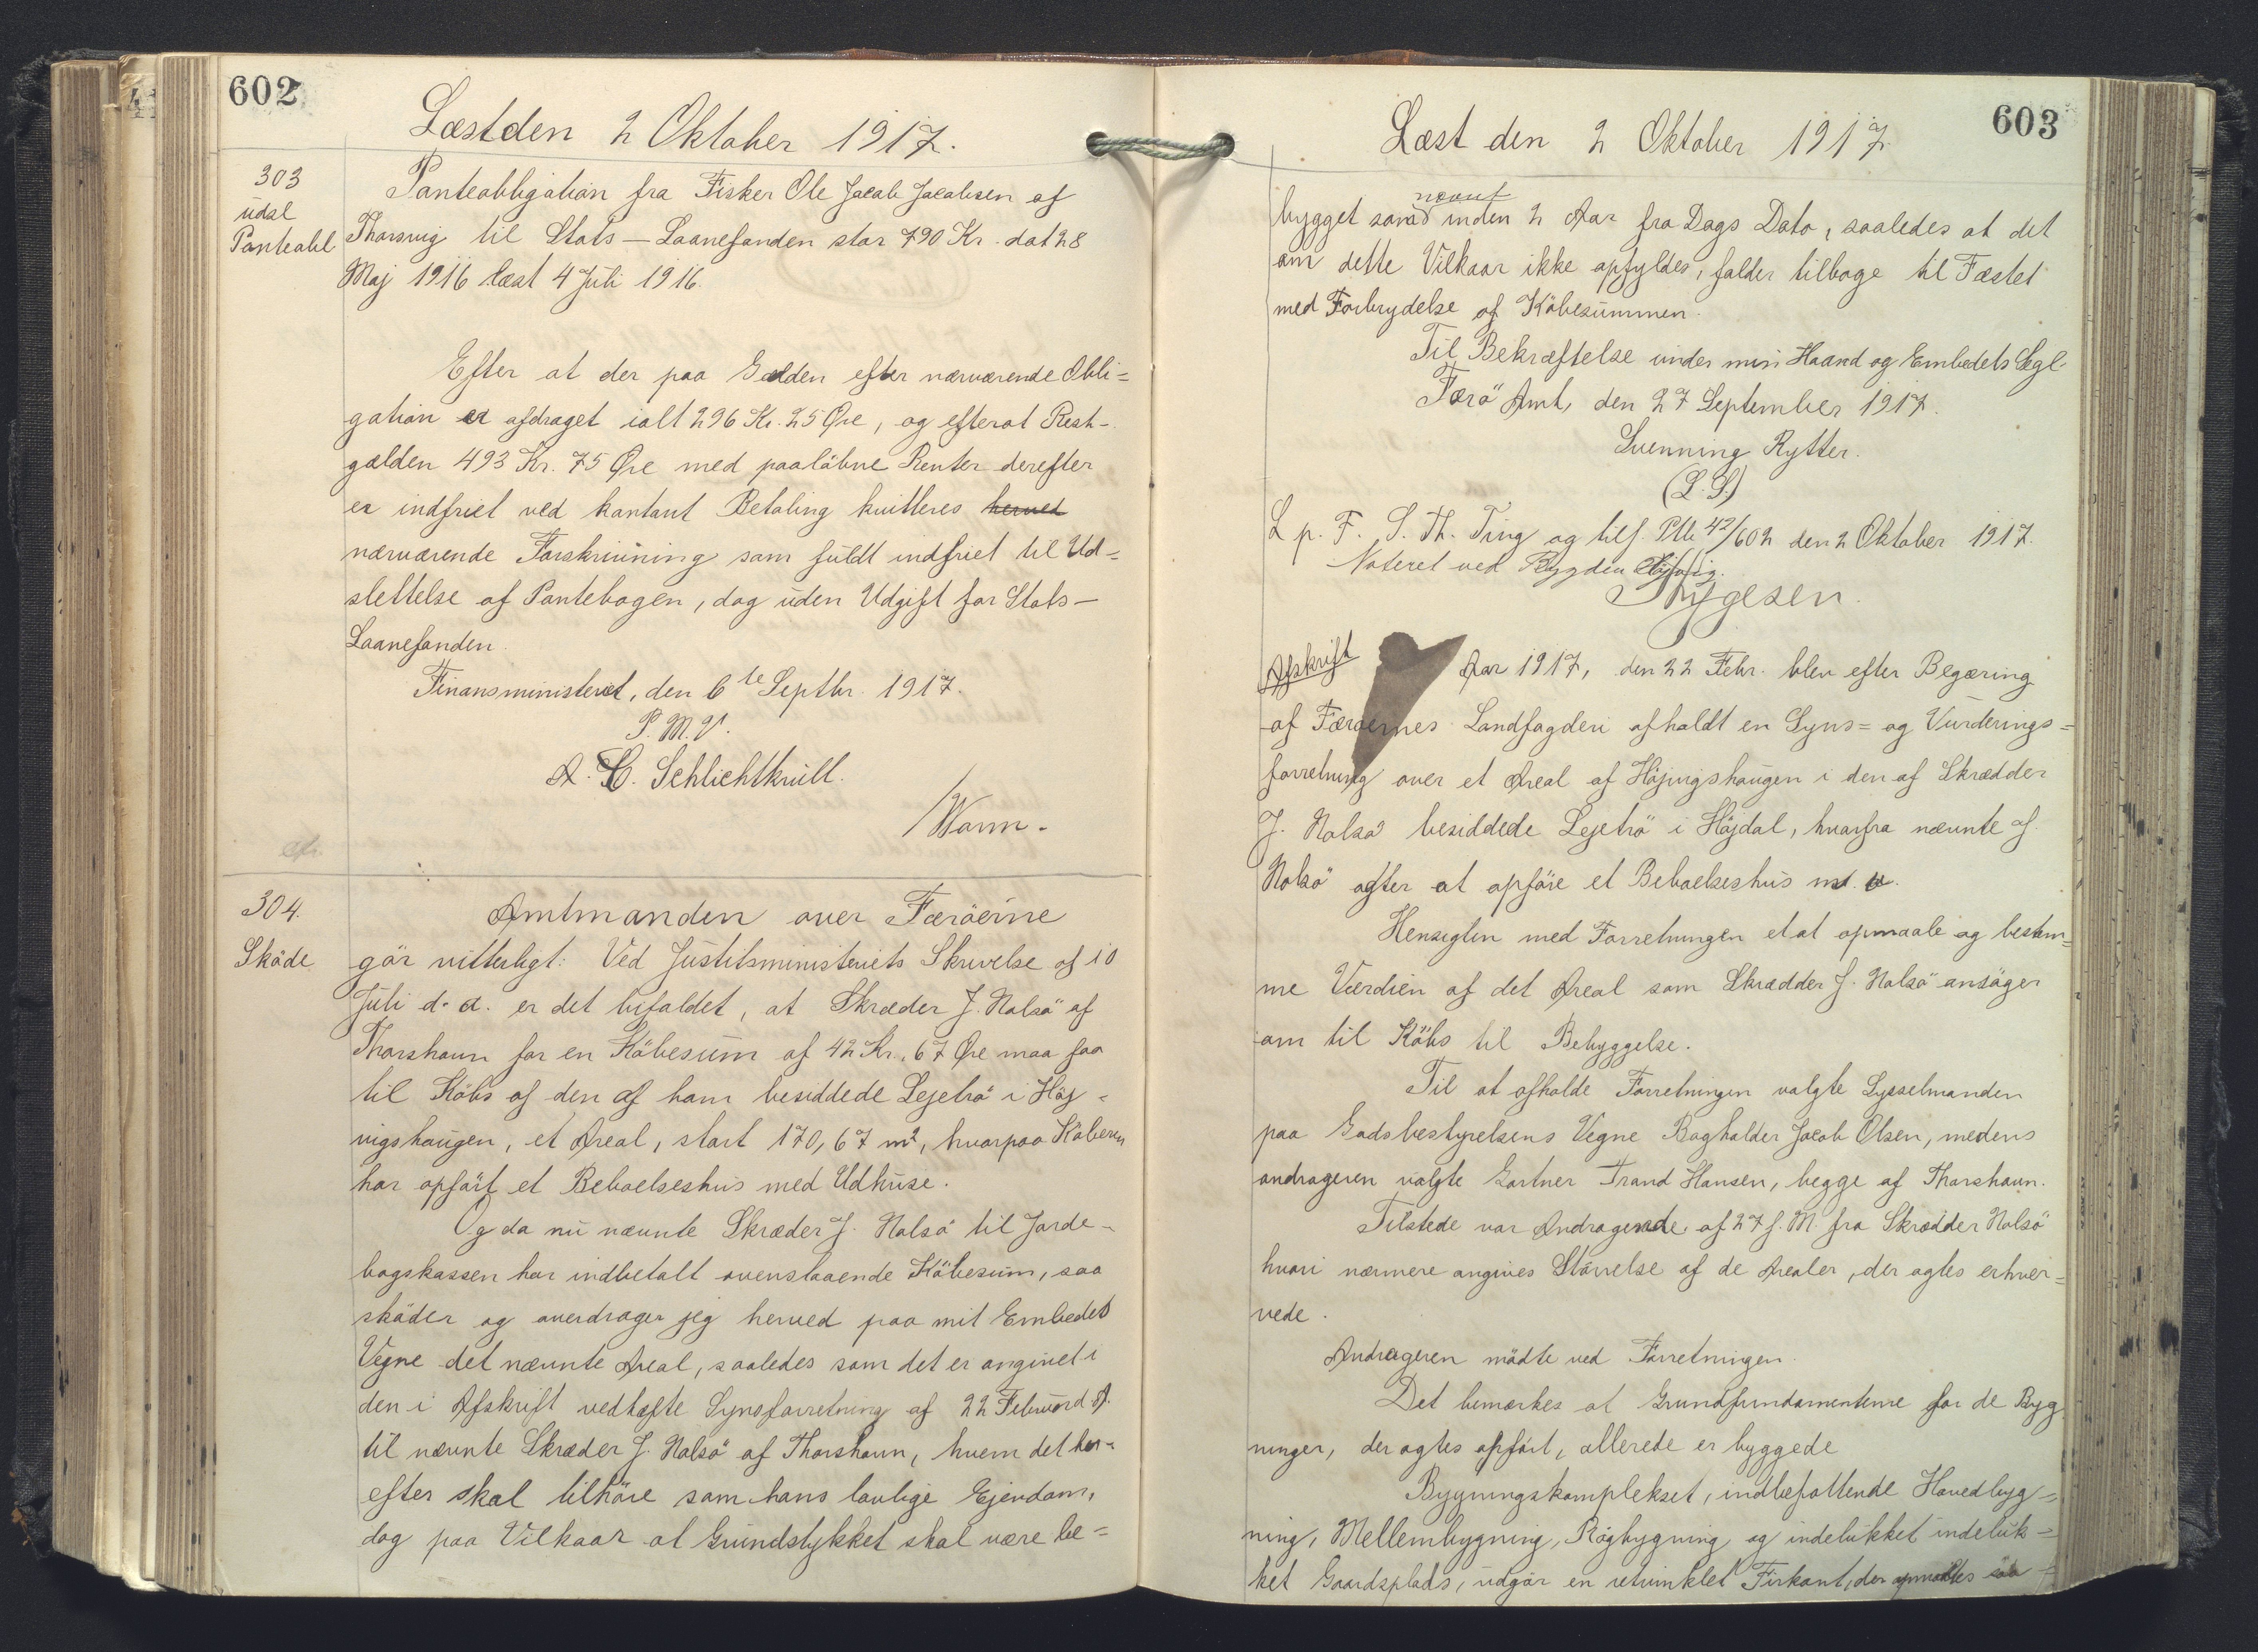 602
Læst den 2 Oktober 1917.
303
udsl
Panteobl
Panteobligation fra Fisker Ole Jacob Jacobsen af
Thorsvig til Stats-Laanefonden stor 790 Kr. dat 28
Maj 1916 læst 4 Juli 1916.
Efter at der paa Gælden efter nærværende Obli=
gation er afdraget ialt 296 Kr. 25 Øre, og efterat Rest-
gælden 493 Kr. 75 Øre med paaløbne Renter derefter
er indfriet ved kontant Betaling kvitteres herved
nærværende Forskrivning som fuldt indfriet til Ud=
slettelse af Pantebogen, dog uden Udgift for Stats-
Laanefonden.
Finansministeriet, den 6te Septbr. 1917.
P. M. V.
A. C. Schlichtkrull.
/Worm.
304.
Sköde
Amtmanden over Færöerne
gör vitterligt: Ved Justitsministeriets Skrivelse af 10
Juli d. A. er det bifaldet, at Skræder J. Nolsö af
Thorshavn for en Köbesum af 42 Kr. 67 Øre maa faa
til Köbs af den af ham besiddede Lejetrö i Höj-
vigshaugen, et Areal, stort 170,67 m², hvorpaa Köberen
har opfört et Beboelseshus med Udhuse.
Og da nu nævnte Skræder J. Nolsö til Jorde-
bogskassen har indbetalt ovenstaaende Köbesum, saa
sköder og overdrager jeg herved paa mit Embedes
Vegne det nævnte Areal, saaledes som det er angivet i
den i Afskrift vedhæfte Synsforretning af 22 Februar d A.
til nævnte Skræder J. Nolsö af Thorshavn, hvem det her-
efter skal tilhöre som hans lovlige Ejendom,
dog paa Vilkaar at Grundstykket skal være be=
603
Læst den 2 Oktober 1917.
nævnt
bygget som inden 2 Aar fra Dags Dato, saaledes at det
om dette Vilkaar ikke opfyldes, falder tilbage til Fæstet
med Forbrydelse af Köbesummen.
Til Bekræftelse under min Haand og Embedets Segl.
Færö Amt, den 27 September 1917.
Svenning Rytter.
(L. S.)
L p. F. S. Th. Ting og tilf. Ptb 42/602 den 2 Oktober 1917.
Noteret ved Bygden
Thygesen.
Afskrift
Aar 1917, den 22 Febr. blev efter Begæring
af Færöernes Landfogderi afholdt en Syns= og Vurderings=
forretning over et Areal af Höjvigshaugen i den af Skrædder
J. Nolsö besiddede Lejetrö i Höjdal, hvorfra nævnte J.
Nolsö agter at opföre et Beboelseshus m. v.
Hensigten med Forretningen et at opmaale og bestem=
me Værdien af det Areal som Skrædder J. Nolsö ansöger
om til Köbs til Bebyggelse.
Til at afholde Forretningen valgte Sysselmanden
paa Godsbestyrelsens Vegne Bogholder Jacob Olsen, medens
andrageren valgte Gartner Trand Hansen, begge af Thorshavn.
Tilstede var Andragende af 27 f. M. fra Skrædder Nolsö
hvori nærmere angives Störrelse af de Arealer, der agtes erhver=
vede.
Andrageren mödte ved Forretningen.
Det bemærkes at Grundfundamenterne for de Byg
ninger, der agtes opfört, allerede er byggede
Bygningskomplekset, indbefattende Hovedbyg=
ning, Mellembygning, Rögbygning og indelukket indeluk=
ket Gaardsplads, udgör en retvinklet Firkant, der opmaaltes